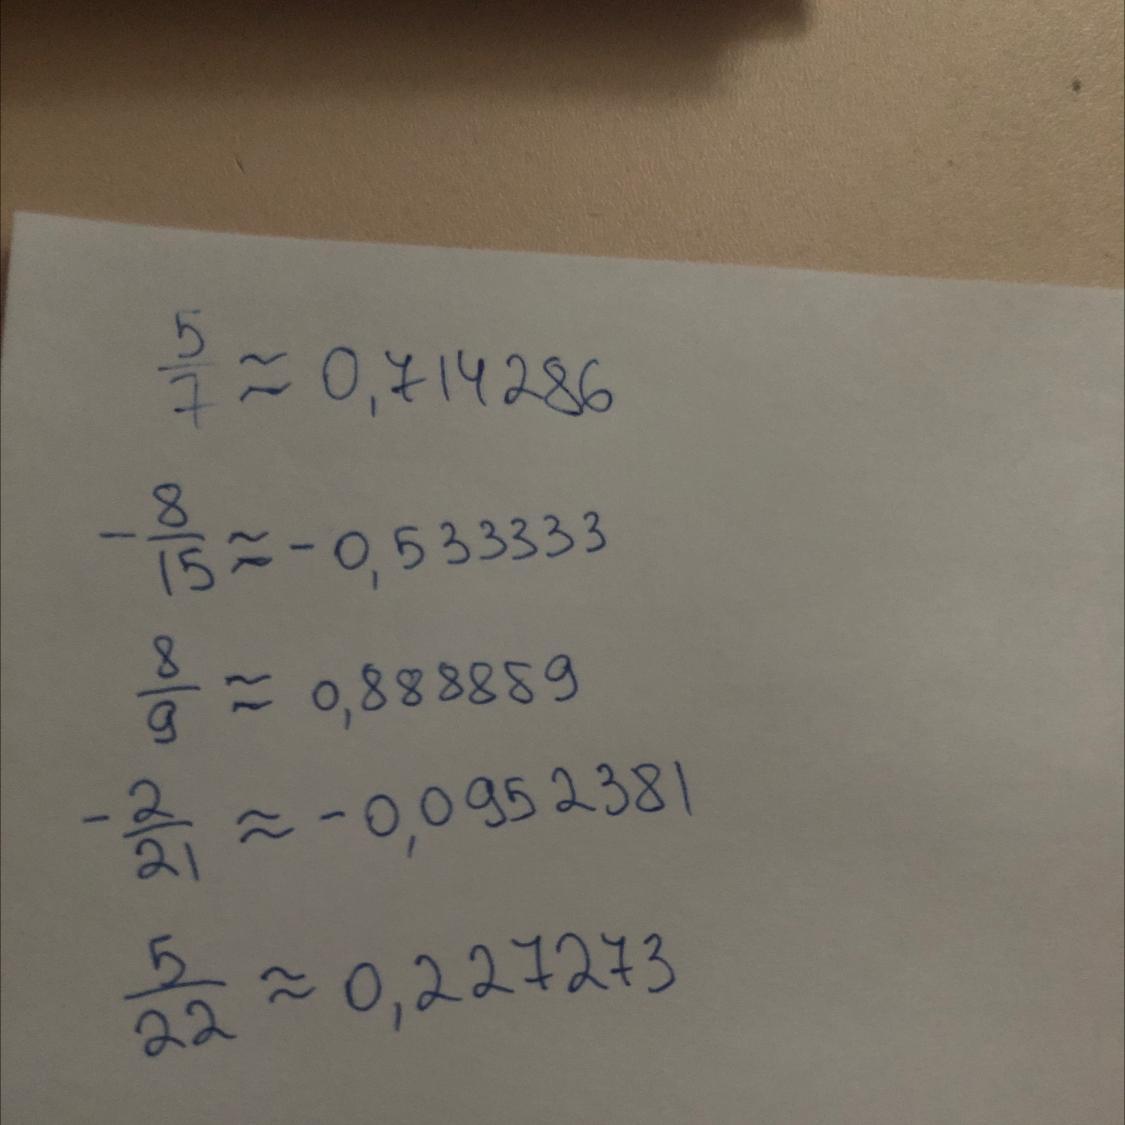 5/7 ≈ 0,714286
-8/15 ≈ -0,533333
8/9 ≈ 0,888889
-2/21 ≈ -0,0952381
5/22 ≈ 0,227273